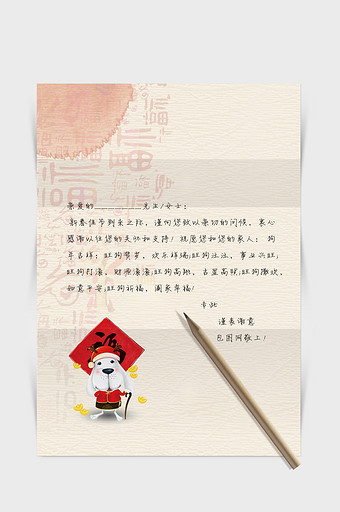 亲爱的__________先生/女士：
新春佳节到来之际，谨向您致以亲切的问候，衷心
感谢以往您的关怀和支持！祝愿您和您的家人：狗
年吉祥；旺狗贺岁，欢乐祥瑞；旺狗汪汪，事业兴旺；
旺狗打滚，财源滚滚；旺狗高跳，吉星高照；旺狗撒欢，
如意平安；旺狗祈福，阖家幸福！
专此
谨表谢意
包图网敬上！
福